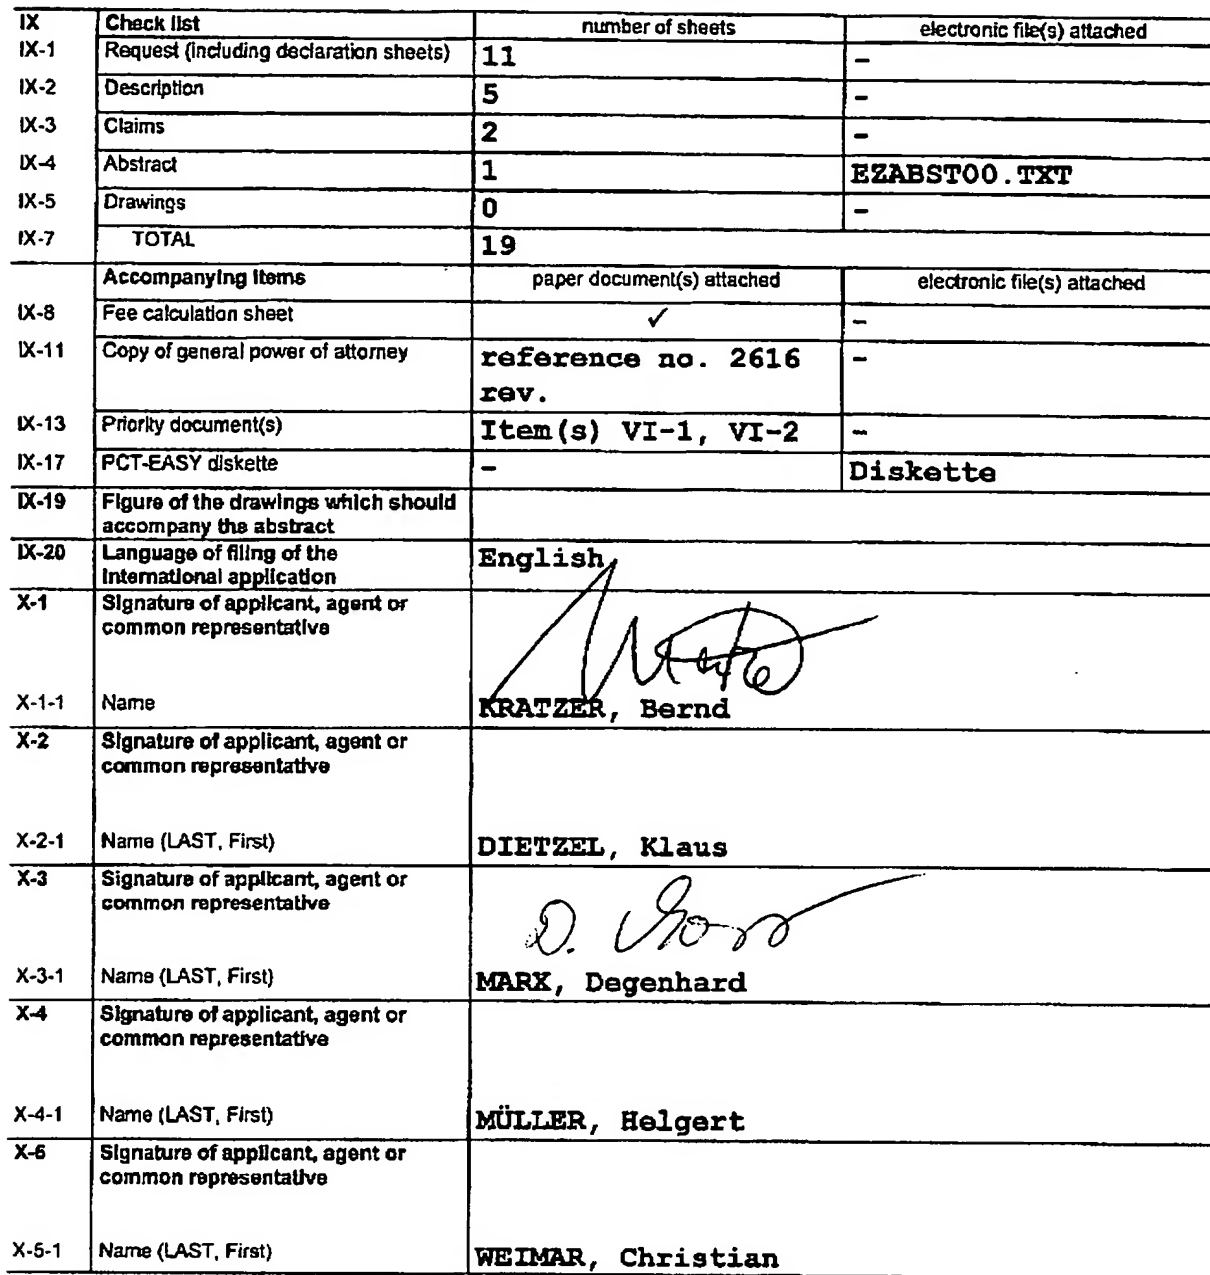 IX Check list number of sheets electronic file(s) attached
IX-1 Request (including declaration sheets) 11 -
IX-2 Description 5 -
IX-3 Claims 2 -
IX-4 Abstract 1 EZABST00.TXT
IX-5 Drawings 0 -
IX-7 TOTAL 19
Accompanying Items paper document(s) attached electronic file(s) attached
IX-8 Fee calculation sheet ✓ -
IX-11 Copy of general power of attorney reference no. 2616 -
rev.
IX-13 Priority document(s) Item(s) VI-1, VI-2 -
IX-17 PCT-EASY diskette - Diskette
IX-19 Figure of the drawings which should
accompany the abstract
IX-20 Language of filing of the English
International application
X-1 Signature of applicant, agent or
common representative
X-1-1 Name KRATZER, Bernd
X-2 Signature of applicant, agent or
common representative
X-2-1 Name (LAST, First) DIETZEL, Klaus
X-3 Signature of applicant, agent or
common representative
D.
X-3-1 Name (LAST, First) MARX, Degenhard
X-4 Signature of applicant, agent or
common representative
X-4-1 Name (LAST, First) MÜLLER, Helgert
X-5 Signature of applicant, agent or
common representative
X-5-1 Name (LAST, First) WEIMAR, Christian